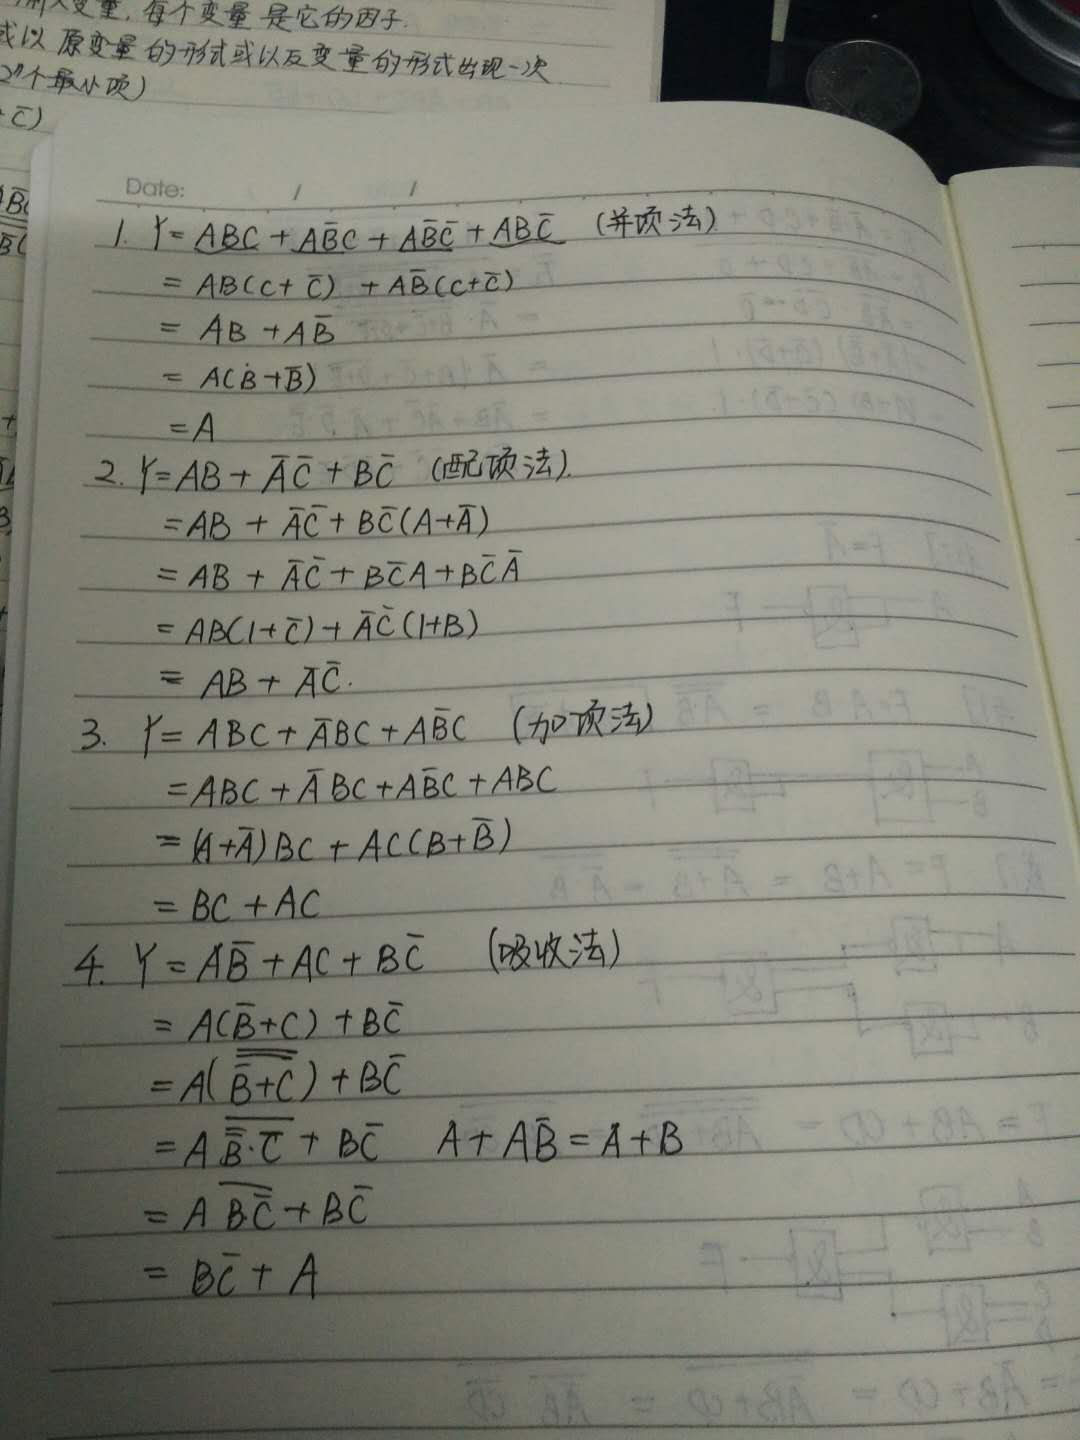 每个变量是它的因子.
或以原变量的形式或以反变量的形式出现一次
2ⁿ个最小项)
Date: / /
1. Y = ABC + AB̅C + AB̅C̅ + ABC̅ (并项法)
= AB(C + C̅) + AB̅(C + C̅)
= AB + AB̅
= A(B + B̅)
= A
2. Y = AB + A̅C̅ + BC̅ (配项法).
= AB + A̅C̅ + BC̅(A + A̅)
= AB + A̅C̅ + BC̅A + BC̅A̅
= AB(1 + C̅) + A̅C̅(1 + B)
= AB + A̅C̅.
3. Y = ABC + A̅BC + AB̅C (加项法)
= ABC + A̅BC + AB̅C + ABC
= (A + A̅)BC + AC(B + B̅)
= BC + AC
4. Y = AB̅ + AC + BC̅ (吸收法)
= A(B̅ + C) + BC̅
= A(B̿̅ ̿+̿ ̿C̿) + BC̅
= A B̿̅ ̅·̅ ̅C̿ + BC̅ A + AB̅ = A + B
= A B̅ ̅C̿ + BC̅
= BC̅ + A